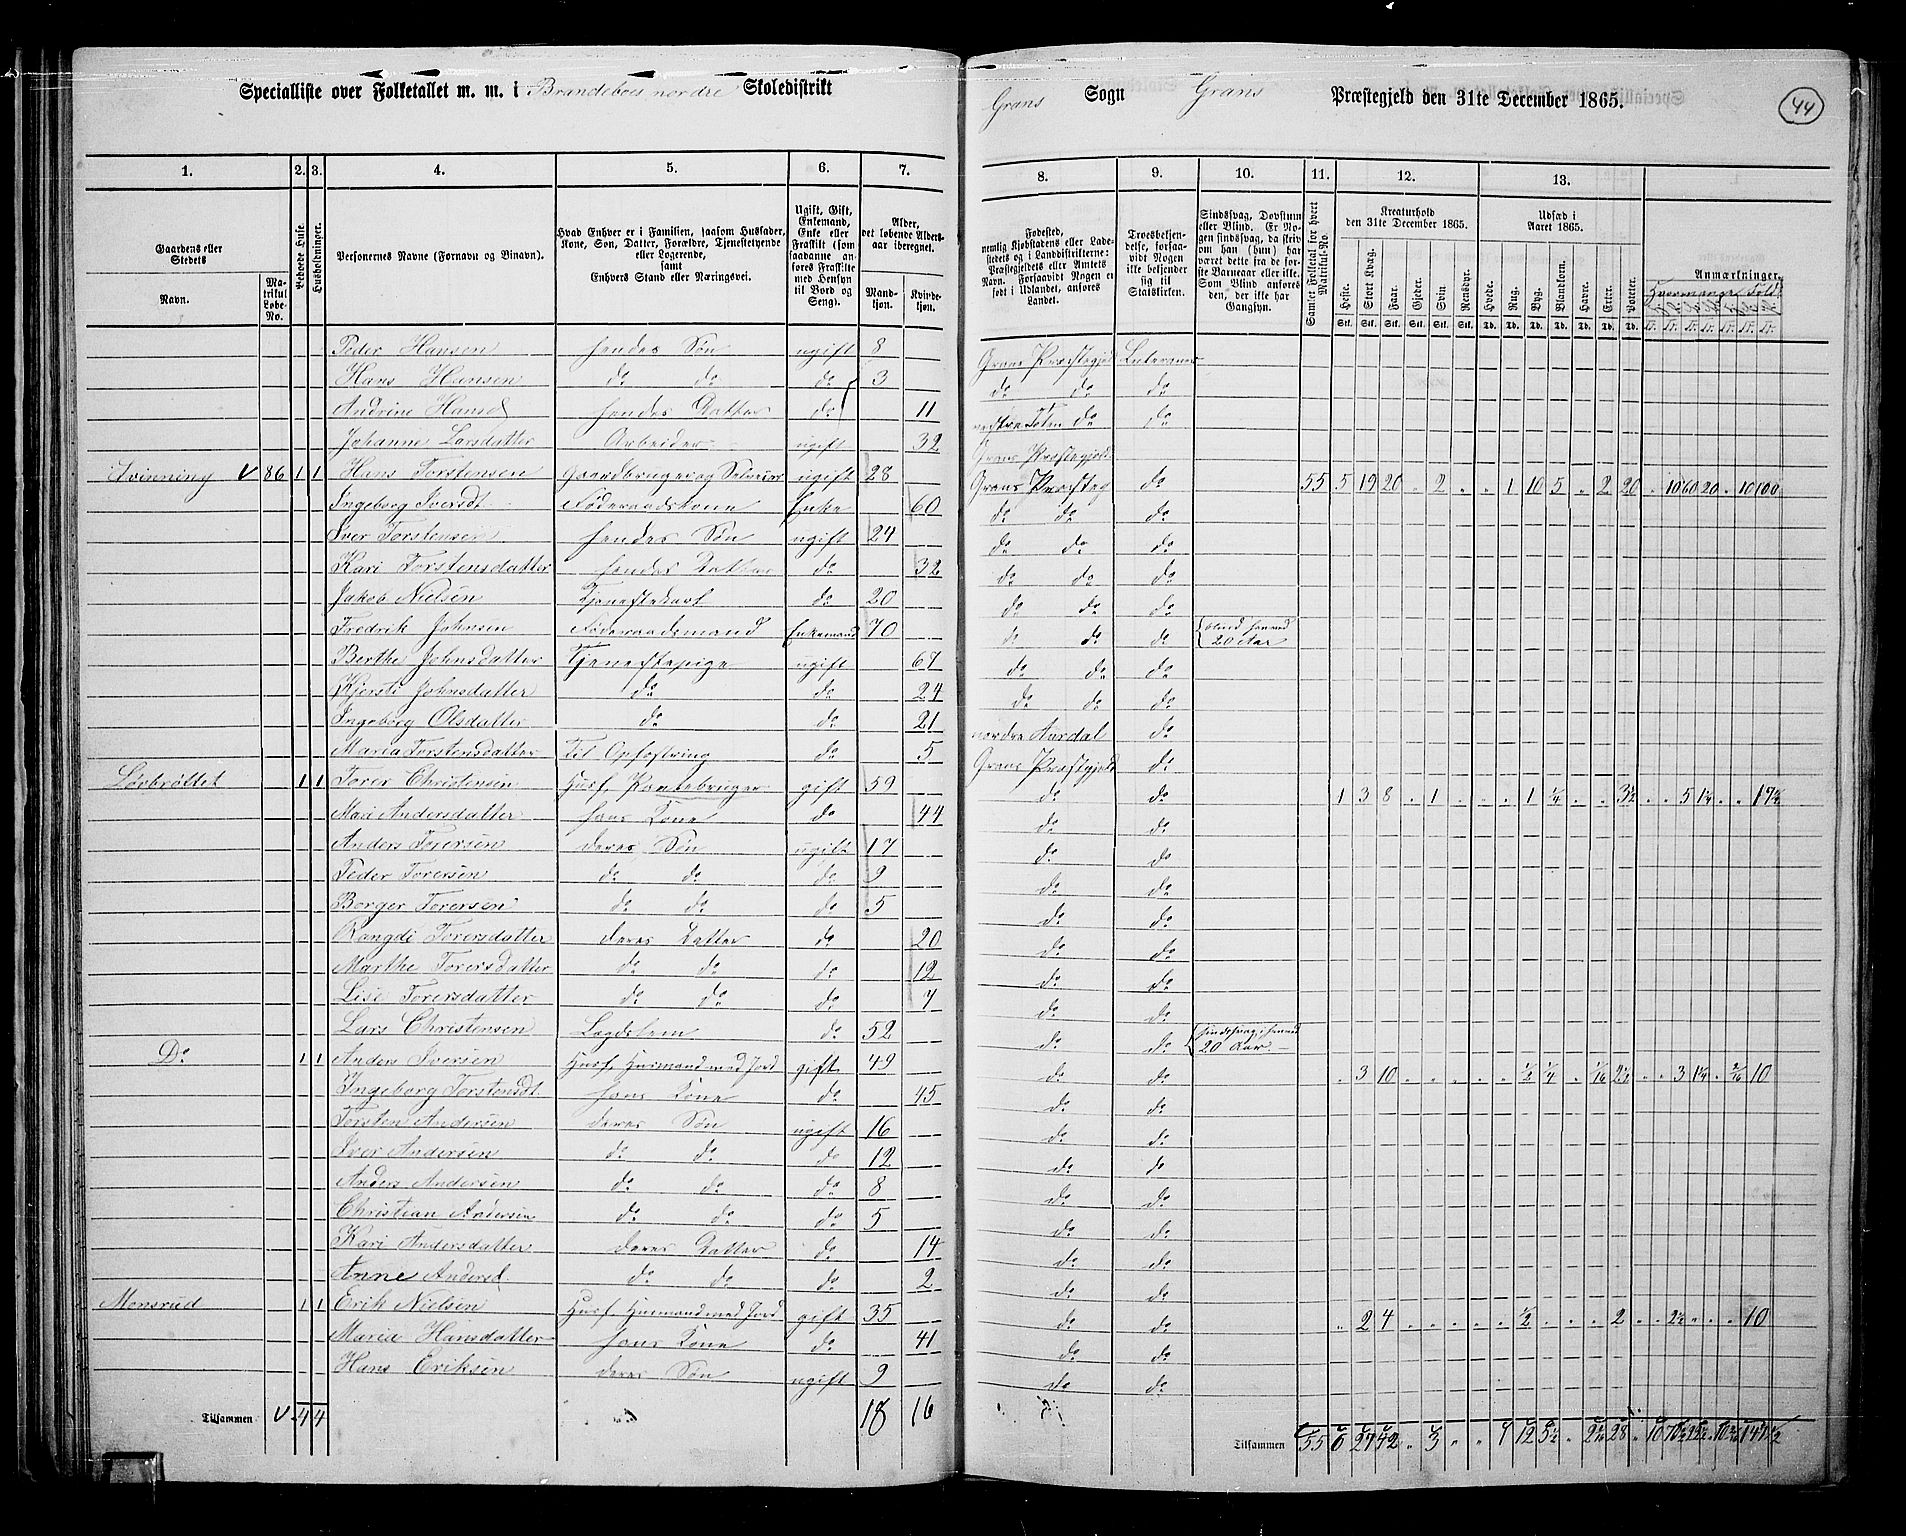 Specialliste over Folketallet m. m. i Brandeboes nordre Skoledistrikt
Grans Sogn Grans Præstegjeld den 31te December 1865.
44
1. 2. 3. 4. 5. 6. 7. 8. 9. 10. 11. 12. 13.
Gaardens eller Stedets
Navn.
Matrikul Løbe-No.
Beboede Huse.
Husholdninger.
Personernes Navne (Fornavn og Binavn).
Hvad Enhver er i Familien, saasom Husfader, Kone, Søn, Datter, Forældre, Tjenestetyende eller Logerende, samt Enhvers Stand eller Næringsvei.
Ugift, Gift, Enkemand, Enke eller Fraskilt (som saadanne anføres Fraskilte med Hensyn til Bord og Seng).
Alder, det løbende Aldersaar iberegnet.
Mandkjøn. Kvindekjøn.
Fødested, nemlig Kjøbstadens eller Ladestedets og i Landdistrikterne: Præstegjeldets eller Amtets Navn. Er Nogen født i Udlandet, anføres Landet.
Troesbekjendelse, forsaavidt Nogen ikke bekjender sig til Statskirken.
Sindssvag, Døvstum eller Blind. Er Nogen sindssvag, da skrives om han (hun) har været dette fra de første Barneaar eller ikke. Som Blind anføres den, der ikke har Gangsyn.
Samlet Folketal for hvert Matrikul-No.
Kreaturhold den 31te December 1865.
Heste. Stort Kvæg. Faar. Gjeder. Svin. Rensdyr.
Udsæd i Aaret 1865.
Hvede. Rug. Byg. Blandkorn. Havre. Erter. Poteter.
Anmærkninger.
Hvormange Fold
Peder Hansen hendes Søn ugift 8 Grans Præstegjeld Luteraner
Hans Hansen do do do 3 do do do
Andrine Hansd hendes Datter do 11 vestre Toten do do
Johanne Larsdatter Arbeider ugift 32 Grans Præstegjeld
Hvinning 86 1 1 Hans Torstensen Gaardbruger og Selveier ugift 28 Grans Præsteg do 55 5 19 20 2 1 10 5 2 20 10 60 20 10 100
Ingeborg Iversdt Føderaadskone Enke 60 do do do
Iver Torstensen hendes Søn ugift 24 do do do
Kari Torstensdatter hendes Datter do 32 do do do
Jakob Nielsen Tjenestekarl do 20 do do do
Fredrik Johnsen Føderaadsmand Enkemand 70 do do do blind henved 20 Aar
Berthe Johnsdatter Tjenestepige ugift 67 do do do
Kjersti Johnsdatter do do 24 do do do
Ingeborg Olsdatter do do 21 nordre Aurdal do
Maria Torstensdatter Til Opfostring do 5 Grans Præstegjeld do
Lørbrøttet 1 1 Torer Christensen Husf. Pantebruger gift 59 do do 1 3 8 1 1 ¼ 3½ 5 1¼ 17½
Mari Andersdatter hans Kone do 44 do do
Anders Torersen deres Søn ugift 17 do do
Peder Torersen do do do 9 do do
Borger Torersen do do do 5 do do
Rangdi Torersdatter deres Datter do 20 do do
Marthe Torersdatter do do do 12 do do
Lise Torersdatter do do do 7 do do
Lars Christensen Lægdslem do 52 do do sindssvag i henved 20 Aar
Do 1 1 Anders Iversen Husf. Husmand med Jord gift 49 do do 3 10 ½ ¼ 1/16 2½ 3 1¼ 2/16 10
Ingeborg Torstensdt hans Kone do 45 do do
Torsten Andersen deres Søn ugift 16 do do
Iver Andersen do do do 12 do do
Anders Andersen do do do 8 do do
Christian Andersen do do do 5 do do
Kari Andersdatter deres Datter do 14 do do
Anne Andersd. do do do 2 do do
Monsrud 1 1 Erik Nielsen Husf. Husmand med Jord gift 35 do do 2 4 ½ 2 2½ 10
Maria Hansdatter hans Kone do 41 do do
Hans Eriksen deres Søn ugift 9 do do
Tilsammen 4 4 18 16
Tilsammen 55 6 27 42 3 1 12 5½ 28